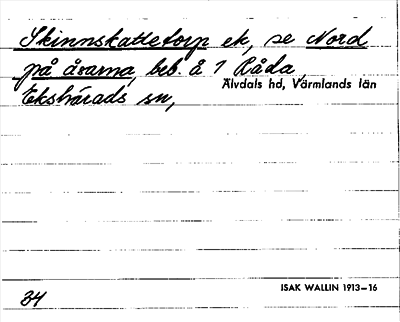 Skinnskattetorp ek, se Nord
på åsarna, beb. å 1 Råda,
Älvdals hd, Värmlands län
Ekshärads sn,
34
ISAK WALLIN 1913–16